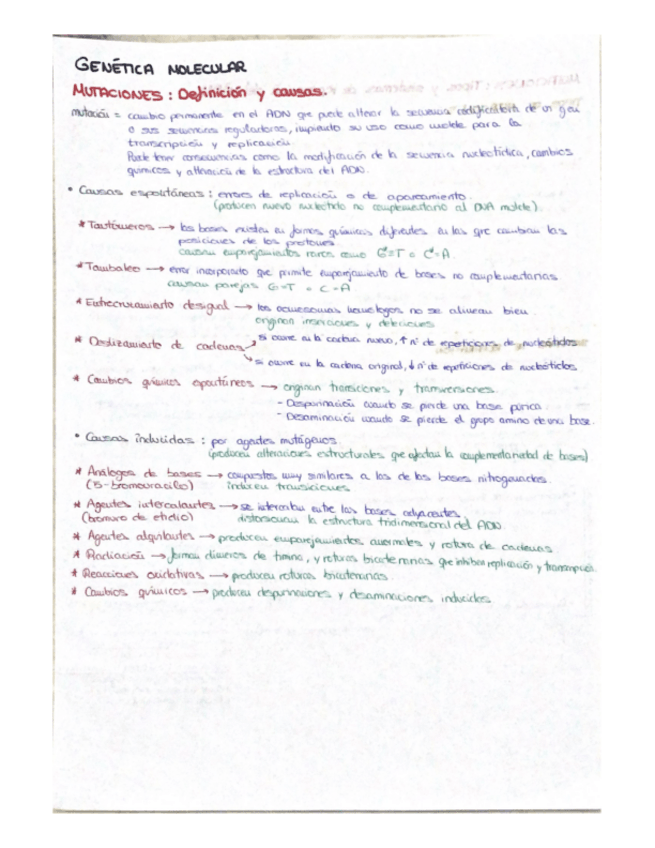 GENÉTICA MOLECULAR
MUTACIONES: Definición y causas.
mutación = cambio permanente en el ADN que puede alterar la secuencia codificadora de un gen
o sus secuencias reguladoras, impidiendo su uso como molde para la
transcripción y replicación.
Puede tener consecuencias como la modificación de la secuencia nucleotídica, cambios
químicos y alteración de la estructura del ADN.
• Causas espontáneas: errores de replicación o de apareamiento.
(producen nuevo nucleótido no complementario al DNA molde).
* Tautómeros → las bases existen en formas químicas diferentes en las que cambian las
posiciones de los protones.
causan emparejamientos raros como G=T o C=A.
* Tambaleo → error incorporado que permite emparejamiento de bases no complementarias
causan parejas G=T o C=A
* Entrecruzamiento desigual → los cromosomas homólogos no se alinean bien.
originan inserciones y deleciones
* Deslizamiento de cadenas → si ocurre en la cadena nueva, ↑ nº de repeticiones de nucleótidos
↘ si ocurre en la cadena original, ↓ nº de repeticiones de nucleótidos
* Cambios químicos espontáneos → originan transiciones y transversiones.
- Despurinación cuando se pierde una base púrica.
- Desaminación cuando se pierde el grupo amino de una base.
• Causas inducidas: por agentes mutágenos.
(producen alteraciones estructurales que afectan la complementariedad de bases)
* Análogos de bases → compuestos muy similares a los de las bases nitrogenadas.
(5-bromouracilo) inducen transiciones
* Agentes intercalantes → se intercalan entre las bases adyacentes.
(bromuro de etidio) distorsionan la estructura tridimensional del ADN.
* Agentes alquilantes → producen emparejamientos anormales y rotura de cadenas
* Radiación → forman dímeros de timina, y roturas bicatenarias que inhiben replicación y transcripción.
* Reacciones oxidativas → producen roturas bicatenarias.
* Cambios químicos → producen despurinaciones y desaminaciones inducidas.